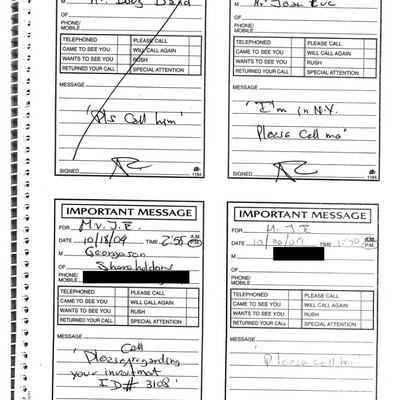 M
OF
PHONE/
MOBILE
TELEPHONED PLEASE CALL
CAME TO SEE YOU WILL CALL AGAIN
WANTS TO SEE YOU RUSH
RETURNED YOUR CALL SPECIAL ATTENTION
MESSAGE
"Pls Call him"
SIGNED 1184
M
OF
PHONE/
MOBILE
TELEPHONED PLEASE CALL
CAME TO SEE YOU WILL CALL AGAIN
WANTS TO SEE YOU RUSH
RETURNED YOUR CALL SPECIAL ATTENTION
MESSAGE
"I'm in N.Y.
Please Call me"
SIGNED 1184
IMPORTANT MESSAGE
FOR Mr. J.E.
DATE 10/18/04 TIME 2:55 A.M. P.M.
M Georgeson
OF Shareholdon
PHONE/
MOBILE
TELEPHONED PLEASE CALL
CAME TO SEE YOU WILL CALL AGAIN
WANTS TO SEE YOU RUSH
RETURNED YOUR CALL SPECIAL ATTENTION
MESSAGE Call
"Please regarding
your investment
ID# 3108
IMPORTANT MESSAGE
FOR M. J.E
DATE 10/30/04 TIME A.M. P.M.
M
OF
PHONE/
MOBILE
TELEPHONED PLEASE CALL
CAME TO SEE YOU WILL CALL AGAIN
WANTS TO SEE YOU RUSH
RETURNED YOUR CALL SPECIAL ATTENTION
MESSAGE
Please call